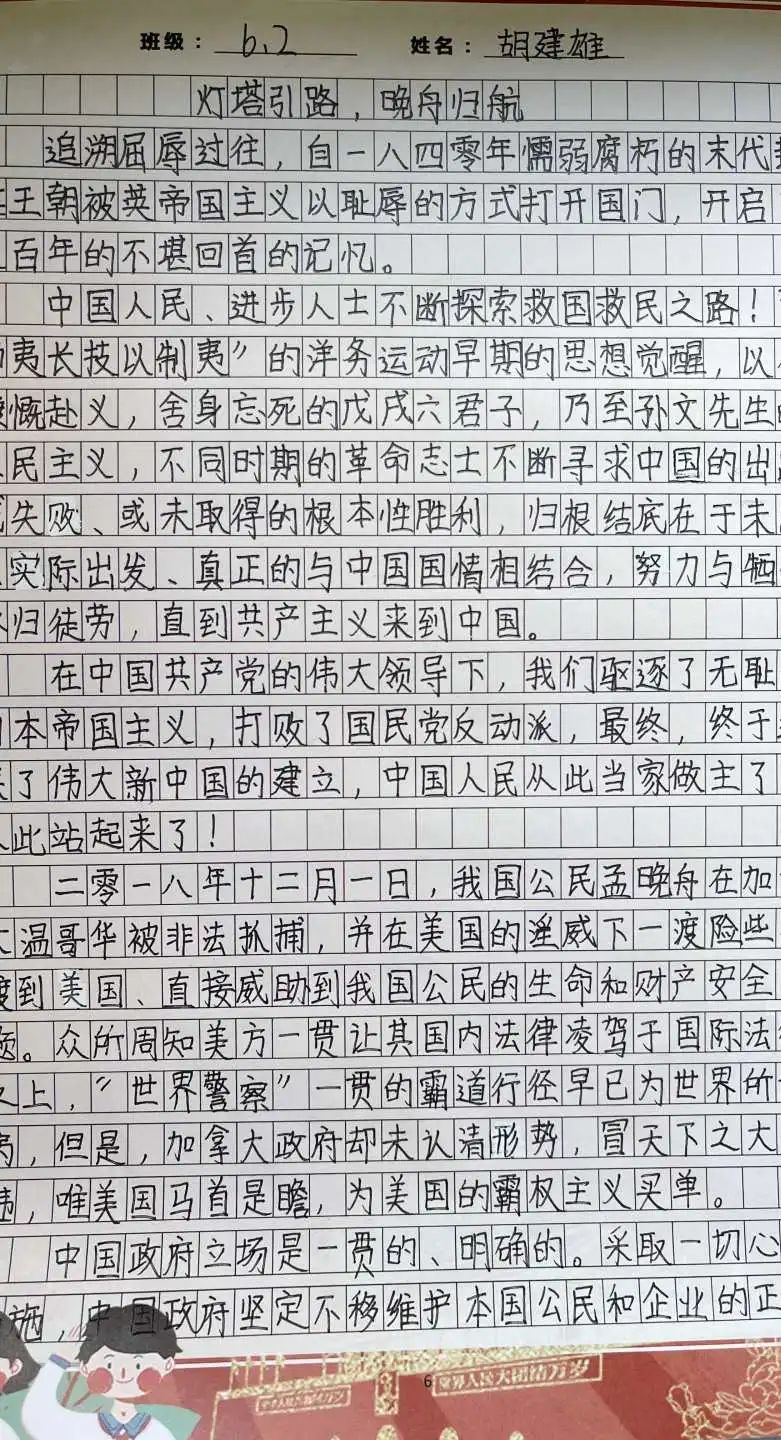 班级： 6.2 姓名： 胡建雄
灯塔引路，晚舟归航
追溯屈辱过往，自一八四零年懦弱腐朽的末代
王朝被英帝国主义以耻辱的方式打开国门，开启
百年的不堪回首的记忆。
中国人民、进步人士不断探索救国救民之路！
夷长技以制夷”的洋务运动早期的思想觉醒，以
慨赴义，舍身忘死的戊戌六君子，乃至孙文先生
民主义，不同时期的革命志士不断寻求中国的出
失败、或未取得的根本性胜利，归根结底在于未
实际出发、真正的与中国国情相结合，努力与牺
归徒劳，直到共产主义来到中国。
在中国共产党的伟大领导下，我们驱逐了无耻
本帝国主义，打败了国民党反动派，最终，终于
了伟大新中国的建立，中国人民从此当家做主了
此站起来了！
二零一八年十二月一日，我国公民孟晚舟在加
温哥华被非法抓捕，并在美国的淫威下一渡险些
渡到美国、直接威助到我国公民的生命和财产安全
题。众所周知美方一贯让其国内法律凌驾于国际法
之上，“世界警察”一贯的霸道行径早已为世界所
，但是，加拿大政府却未认清形势，冒天下之大
违，唯美国马首是瞻，为美国的霸权主义买单。
中国政府立场是一贯的、明确的。采取一切心
施，中国政府坚定不移维护本国公民和企业的正
6
世界人民大团结万岁